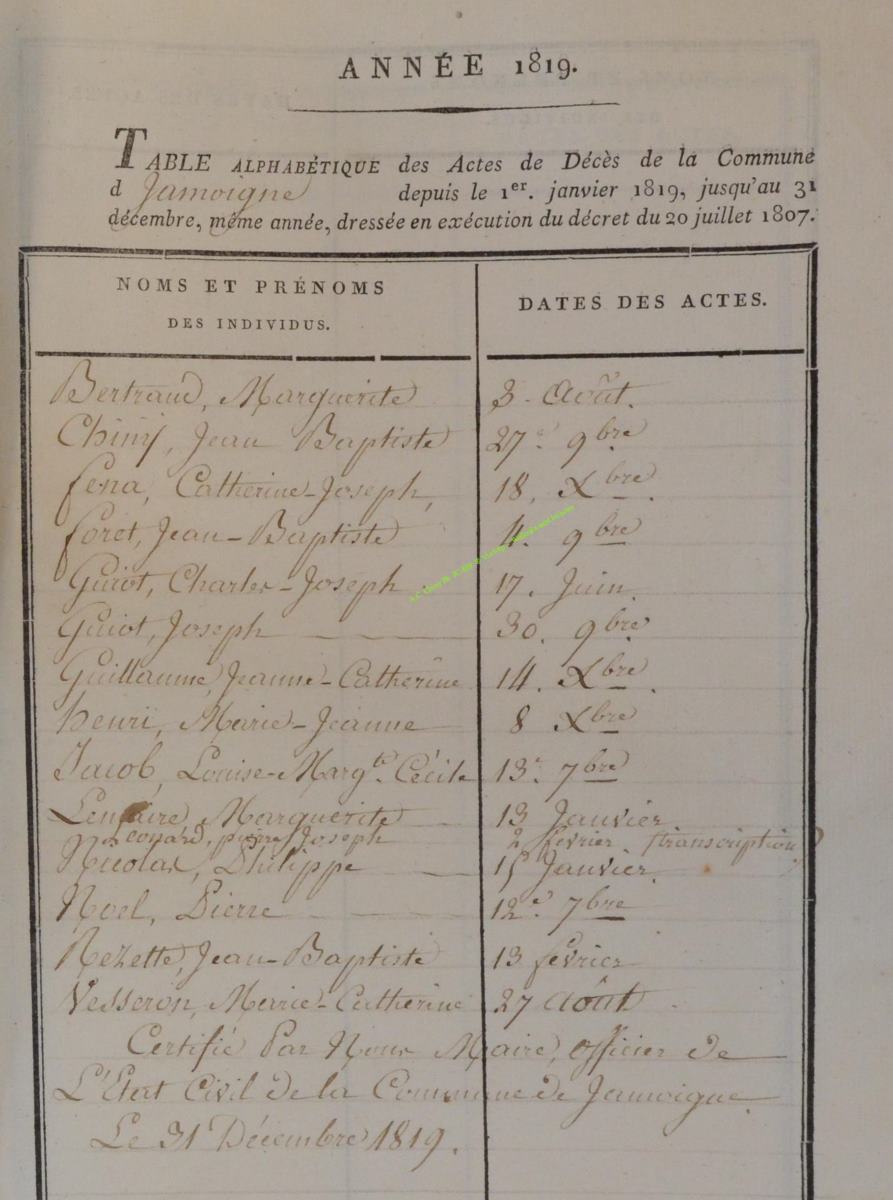 ANNÉE 1819.
TABLE ALPHABÉTIQUE des Actes de Décès de la Commune
d Jamoigne depuis le 1er. janvier 1819, jusqu'au 31
décembre, même année, dressée en exécution du décret du 20 juillet 1807.
NOMS ET PRÉNOMS
DES INDIVIDUS.
DATES DES ACTES.
Bertrand, Marguerite 3. Août.
Chiny, Jean Baptiste 27e. 9bre
fena, Catherine-Joseph, 18. Xbre.
foret, Jean-Baptiste 4. 9bre
Guiot, Charles-Joseph 17. Juin.
Guiot, Joseph 30. 9bre
Guillaume, Jeanne-Catherine 14. Xbre.
henri, Marie-Jeanne 8 Xbre
Jacob, Louise-Margte. Cécile 13. 7bre
Lemaire, Marguerite 13 Janvier
Léonard, pierre Joseph 2 février (transcription)
Nicolas, Philippe 15 Janvier.
Noel, Pierre 12e. 7bre
Rezette, Jean-Baptiste 13 février
Vesseron, Marie-Catherine 27 Août.
Certifié Par Nous Maire, officier de
L'Etat Civil de la Commune de Jamoigne
Le 31 Décembre 1819.